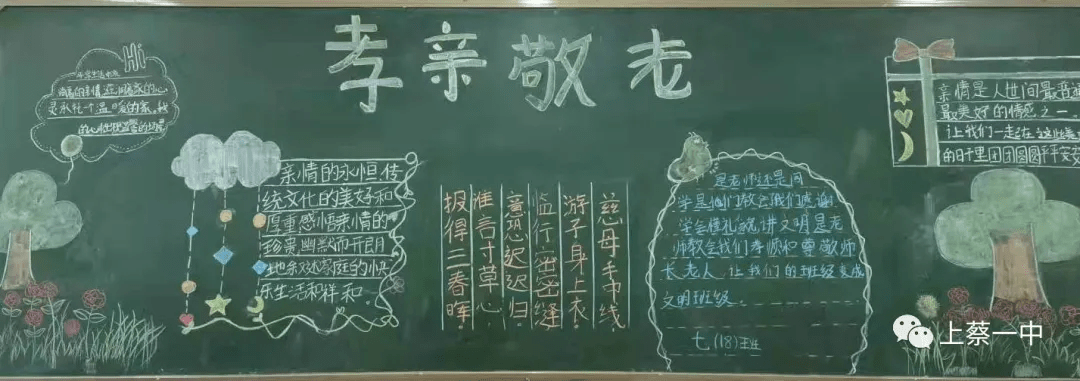 孝亲敬老
Hi
灵永托一个温暖的家。我
亲情的永恒,传
统文化的美好和
厚重感悟亲情的
珍贵幽默而开朗
地余对家庭的快
乐生活和祥和.
慈母手中线
游子身上衣。
临行密密缝
意恐迟迟归.
谁言寸草心
报得三春晖。
是老师还是同
学是他们教会我们感谢
学会懂礼貌讲文明是老
师教会我们孝顺和尊敬师
长老人,让我们的班级变成
文明班级.
七(18)班
亲情是人世间最
最美好的情感之一.
让我们一起在
的日子里团团圆圆平平安安
上蔡一中